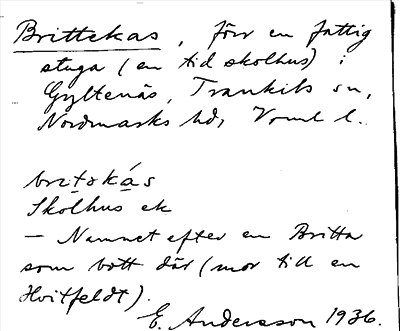 Brittekas, förr en fattig
stuga (en tid skolhus) i
Gyltenäs, Trankils sn,
Nordmarks hd, Vrml l.
britəkás
Skolhus ek
– Namnet efter en Britta
som bott där (mor till en
Hvitfeldt).
E. Andersson 1936.